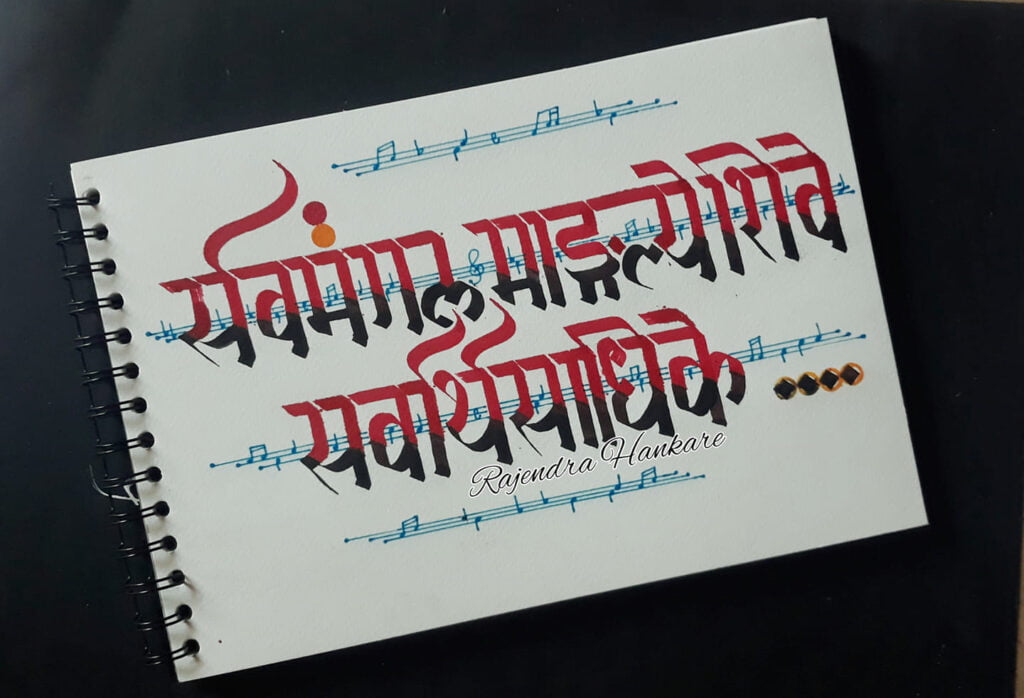 सर्वमंगल माङ्गल्ये शिवे
सर्वार्थसाधिके
Rajendra Hankare